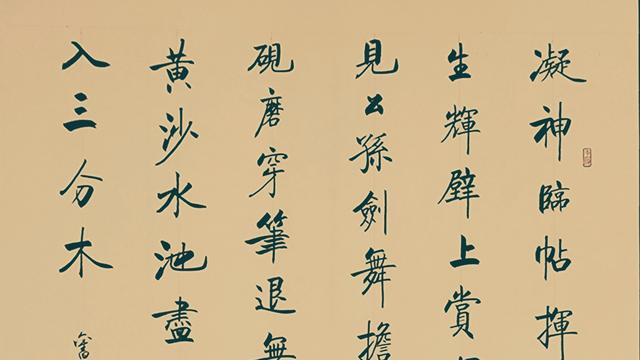 凝神臨帖揮
生輝壁上賞
見公孫劍舞擔
硯磨穿筆退無
黃沙水池盡
入三分木